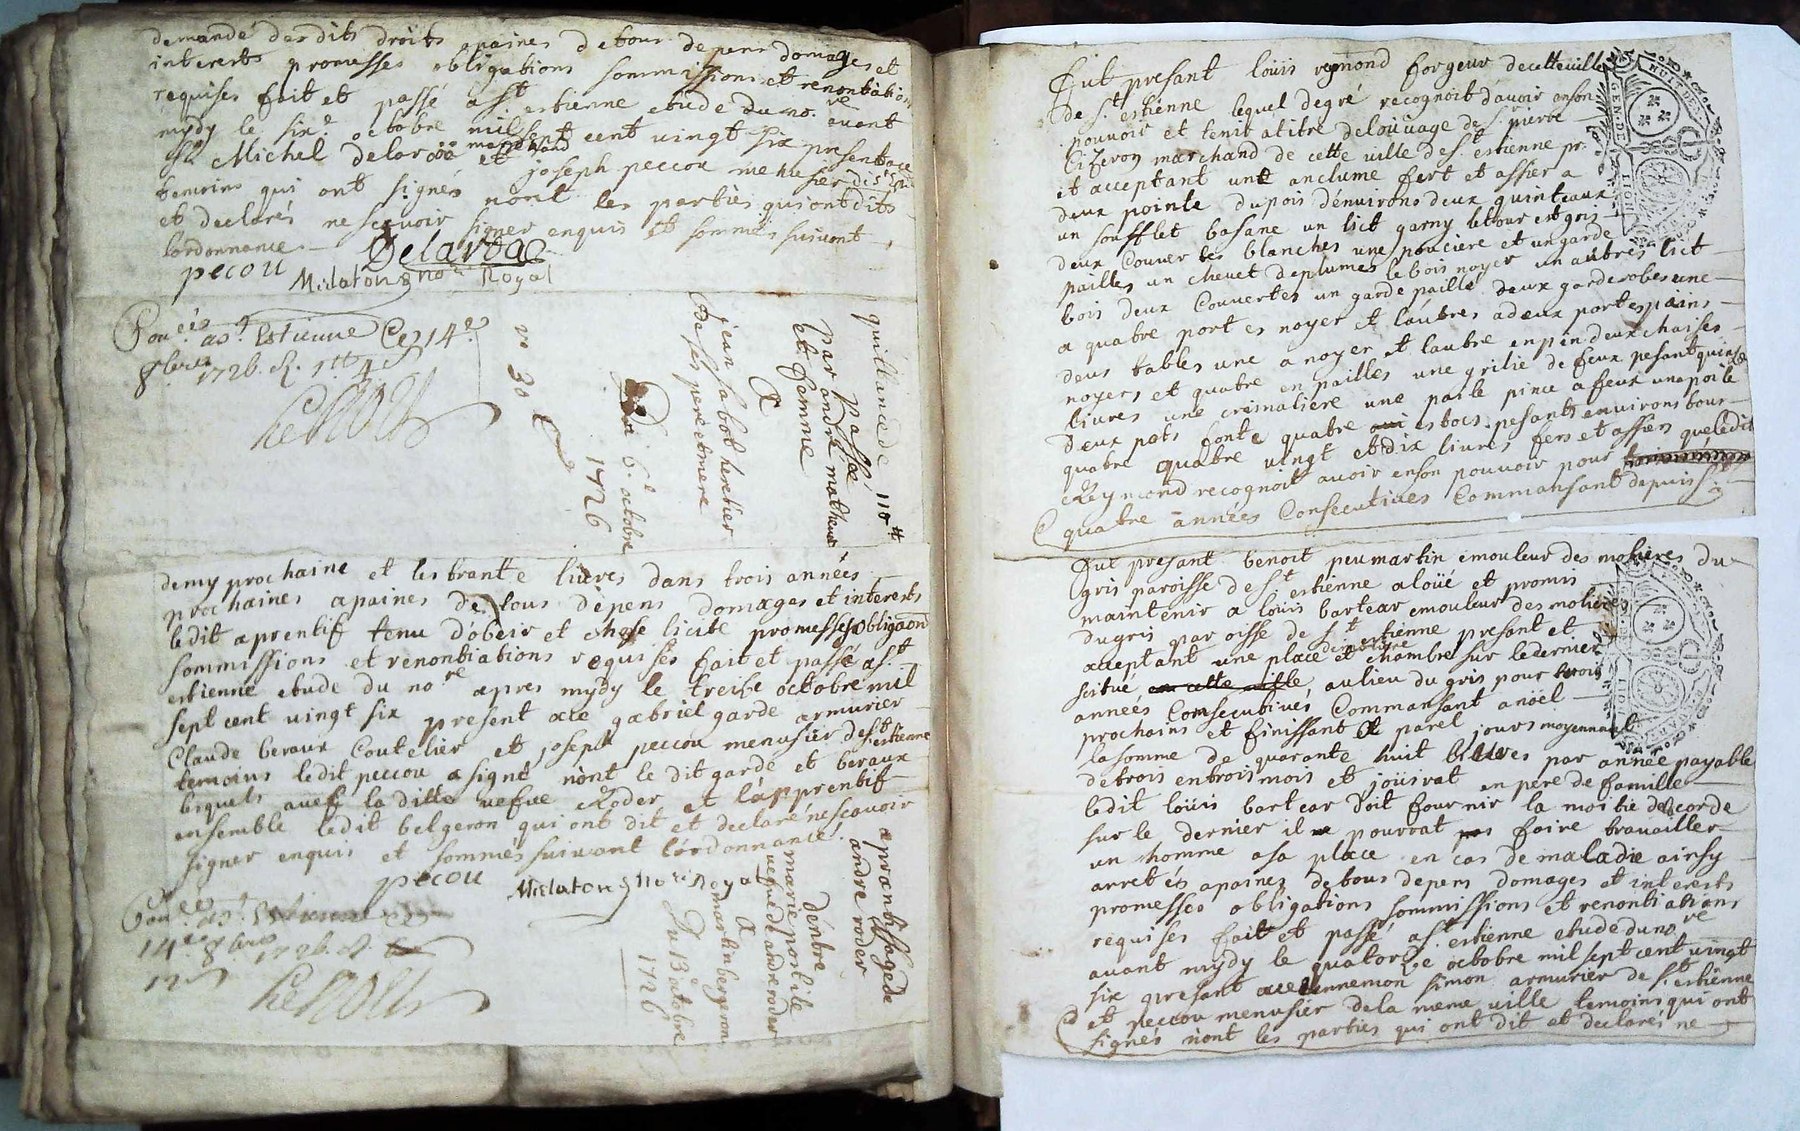 demandé desdits droits apaines detous depens domages et
interests promesses obligations sommissions et renontiations
requises fait et passé a st. estienne etude du no.re avant
mydy le six.e octobre mil sept cent vingt six present ace
sr. Michel delaroa marchand et joseph peccou menusier de st. e
temoins qui ont signés nont les parties qui ont dits
et declarés ne scavoir signer enquis et sommés suivant
lordonnance
pecou Delaroa
Mislatong nore. Royal
Con.ée a st. Estienne Ce 14.e
8bre 1726. R.
no 30
quittance de 118 tt
passée
par andré matheud
et femme
A
jean sabot heretier
de ses pere et mere
Du 6.e octobre
1726
demy prochaine et les trante livres dans trois années
prochaines apaines de tous depens domages et interests
ledit aprentif tenu dobeir et chose licite promesses obligaon
sommissions et renontiations requises fait et passé a st.
estienne etude du nore apres mydy le treise octobre mil
sept cent vingt six present ace gabriel garde armurier
Claude beraux Coutelier et joseph peccou menusier de st. estienne
temoins ledit peccou a signé nont le dit garde et beraux
lequels avec la ditte vefve Roder et lapprentif
ensemble ledit belgeron qui ont dit et declaré ne scavoir
signer enquis et sommés suivant lordonnance.
pecou Mislatong nore Royal
Con.ée a st. Estienne
14.e 8bre 1726. R.
12 s
aprantissage de
andré roder
dentre
marie postile
vefve de andré roder
A
martin bergeron
Du 13.e octobre
1726
Fut presant loüis reymond forgeur decetteville
de st. estienne lequel degré recognoit davoir enson
pouvoir et tenir atitre delouuage de sr. pierre
Cizeron marchand de cette ville de st. estienne pr.
et acceptant une anclume fert et assier a
deux pointe dupois denvirons deux quinteaux
un soufflet basane un lict garny letour est gris
deux Couvertes blanches une pouciere et un garde
pailles un chevet deplumes lebois noyer un autres lict
bois deux Couvertes un garde paille deux garderobes une
a quatre portes noyer et lautres adeux portes pains
deus tables une a noyer et lautre enpin deux chaises
noyers et quatre en pailles une grilie de feux pesant quinse
livres une crimaliere une paile pince a feux une poile
Deux pots fonte quatre estocs pesants environs tous
quatre quatre vingt et dix livres fers et assiers que ledit
Reymond recognoit avoir enson pouvoir pour
quatre années Consecutives Commansant depuis st.
Fut presant benoit peumartin emouleur des molieres du
gris paroisse de st. estienne a loüé et promis
maintenir a loüis bartear emouleur des molieres
dugris paroisse de st. estienne presant et
acceptant une place demeulliere et chambre sur ledernier
scitué en cette ville au lieu du gris pour trois
années Consecutives Commansant a noël
prochains et finissant A parel jours moyennant
la somme de quarante huit livres par année payable
de trois en trois mois et jouirat en pere de famille
ledit loüis bartear doit fournir la moitié de la corde
sur le dernier il ne pourrat pas faire travailler
un homme a sa place en cas de maladie ainsy
arretés apaines detous depens domages et interests
promesses obligations sommissions et renontiations
requises fait et passé a st. estienne etude du nore
avant mydy le quatorze octobre mil sept cent vingt
six presant ace ennemon simon armurier de st. estienne
et peccou menusier dela meme ville temoins qui ont
signés nont les parties qui ont dit et declarés ne